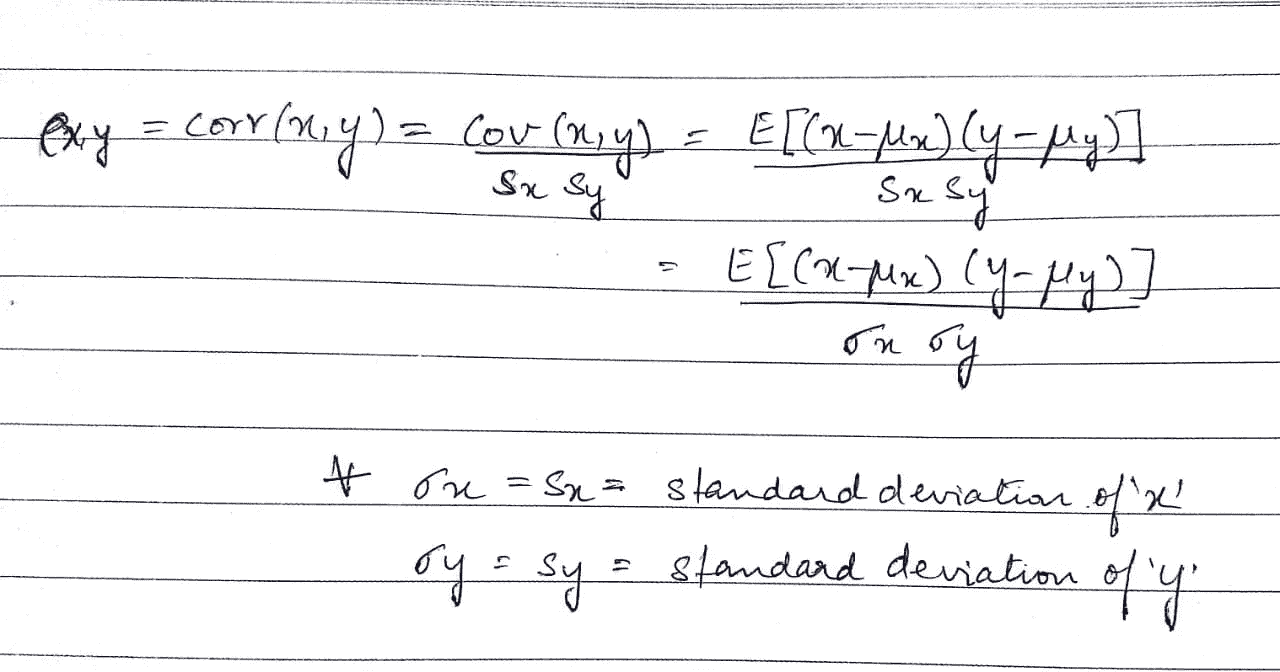 ρx,y = corr(x,y) = Cov(x,y) / Sx Sy = E[(x-μx)(y-μy)] / Sx Sy
= E[(x-μx) (y-μy)] / σx σy
* σx = Sx = standard deviation of 'x'
σy = Sy = standard deviation of 'y'